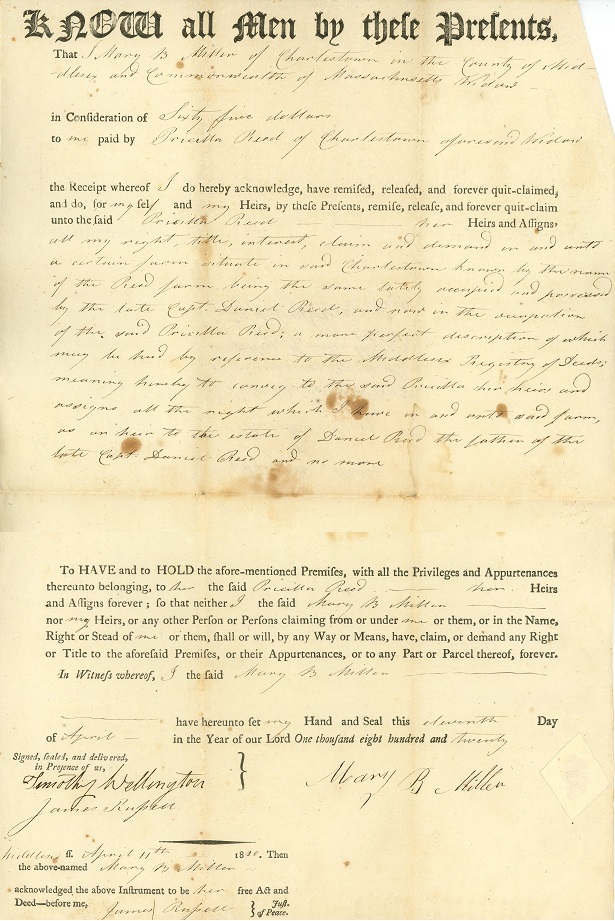 KNOW all Men by theſe Preſents,
That I Mary B Miller of Charlestown in the County of Mid-
dlesex and Commonwealth of Massachusetts Widow
in Conſideration of Sixty five dollars
to me paid by Pricilla Reed of Charlestown aforesaid Widow
the Receipt whereof I do hereby acknowledge, have remiſed, releaſed, and forever quit-claimed,
and do, for myself and my Heirs, by theſe Preſents, remiſe, releaſe, and forever quit-claim
unto the ſaid Pricilla Reed her Heirs and Aſſigns,
all my right, title, interest, claim and demand in and unto
a certain farm situate in said Charlestown known by the name
of the Reed farm being the same lately occupied and possessed
by the late Capt. Daniel Reed, and now in the occupation
of the said Pricilla Reed; a more perfect description of which
may be had by reference to the Middlesex Registry of Deeds;
meaning hereby to convey to the said Pricilla her heirs and
assigns all the right which I have in and unto said farm,
as an heir to the estate of Daniel Reed the father of the
late Capt. Daniel Reed and no more
To HAVE and to HOLD the afore-mentioned Premiſes, with all the Privileges and Appurtenances
thereunto belonging, to her the ſaid Pricilla Reed her Heirs
and Aſſigns forever; ſo that neither I the ſaid Mary B Miller
nor my Heirs, or any other Perſon or Perſons claiming from or under me or them, or in the Name,
Right or Stead of me or them, ſhall or will, by any Way or Means, have, claim, or demand any Right
or Title to the aforeſaid Premiſes, or their Appurtenances, or to any Part or Parcel thereof, forever.
In Witneſs whereof, I the ſaid Mary B Miller
have hereunto ſet my Hand and Seal this eleventh Day
of April in the Year of our Lord One thouſand eight hundred and twenty
Signed, ſealed, and delivered,
in Preſence of us,
Timothy Wellington
Mary B Miller
James Ruſsell
Middlesex ſſ. April 11th 1820. Then
the above-named Mary B Miller
acknowledged the above Inſtrument to be her free Act and
Deed—before me, James Ruſsell Juſt. of Peace.